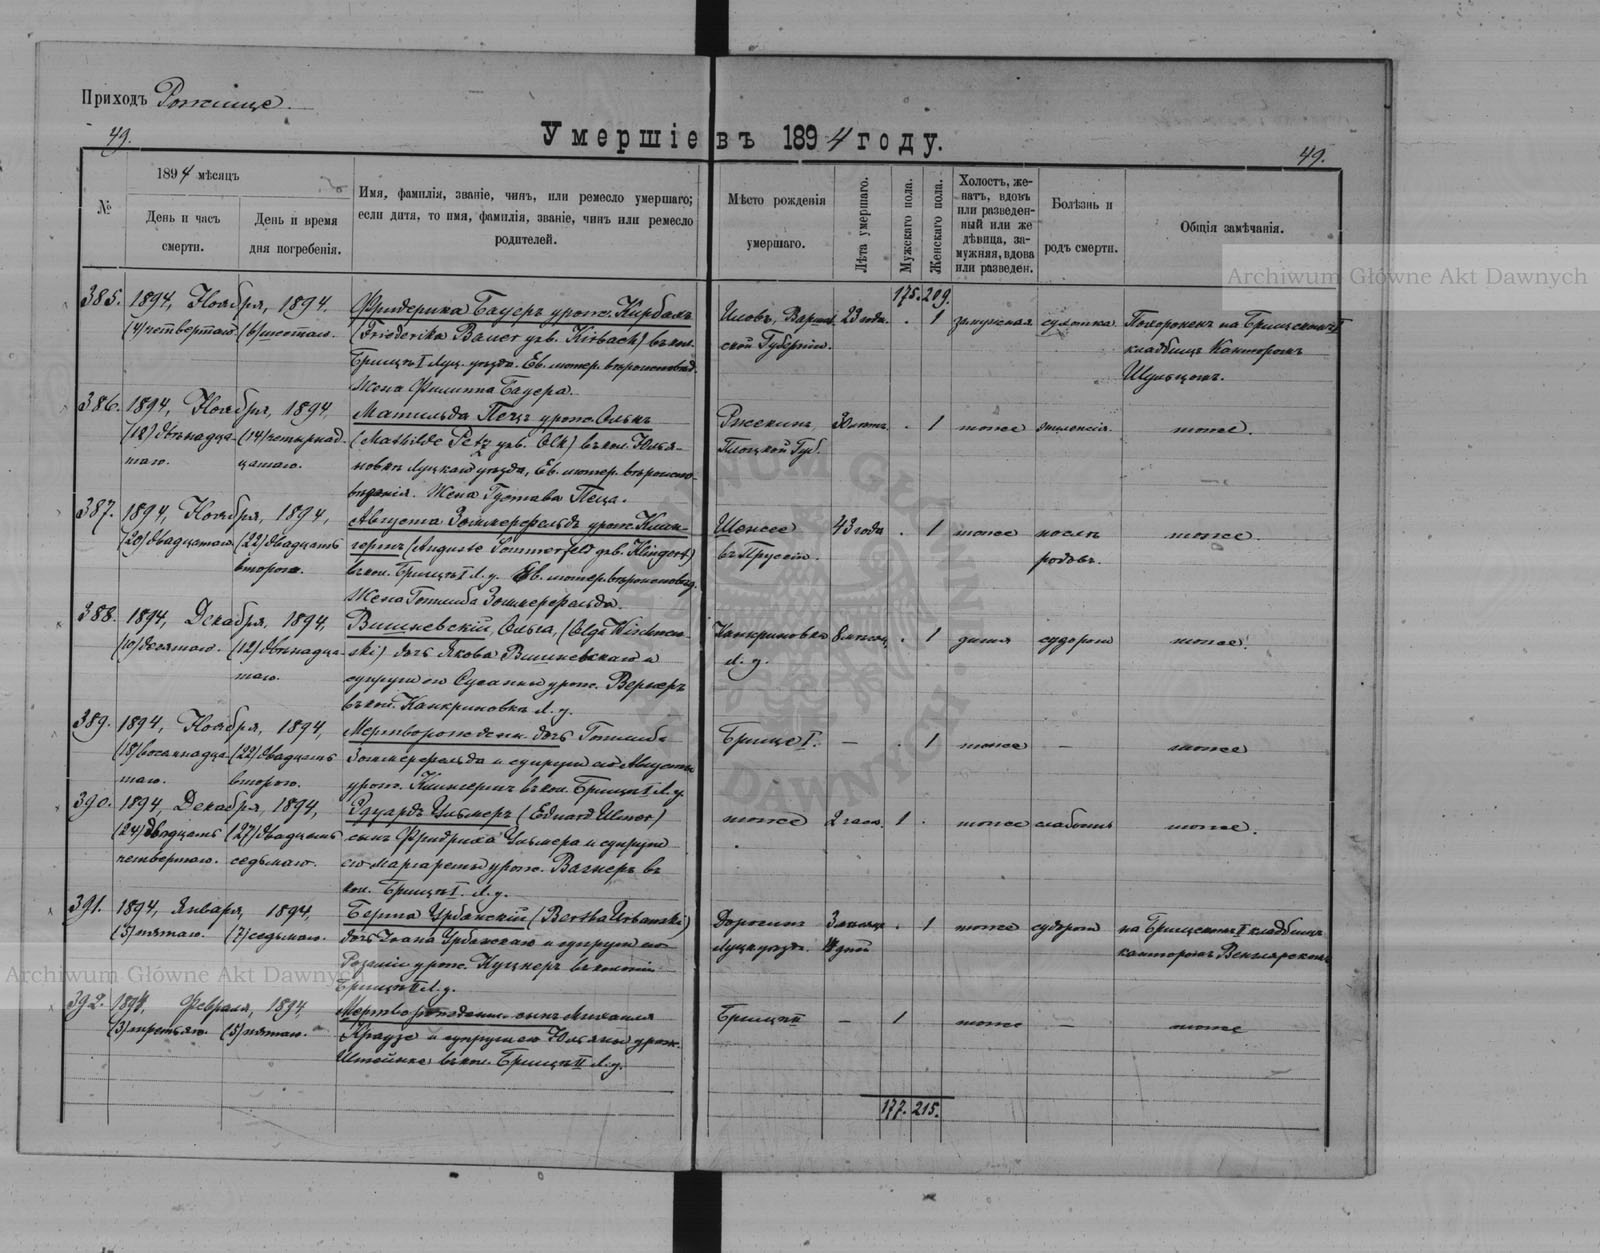 Приходъ Рожище.
49.
Умершіе въ 1894 году.
49.
№
1894 мѣсяцъ
День и часъ смерти.
День и время дня погребенія.
Имя, фамилія, званіе, чинъ, или ремесло умершаго;
если дитя, то имя, фамилія, званіе, чинъ или ремесло
родителей.
Мѣсто рожденія
умершаго.
Лѣта умершаго.
Мужскаго пола.
Женскаго пола.
Холостъ, же-
натъ, вдовъ
или разведен-
ный или же
дѣвица, за-
мужняя, вдова
или разведен.
Болѣзнь и
родъ смерти.
Общія замѣчанія.
Archiwum Główne Akt Dawnych
175. 209.
385. 1894, Ноября, 1894,
(4) четвертаго. (6) шестаго.
Фридерика Бауеръ урож. Кирбахъ
(Friederika Bauer geb. Kirbach) въ кол.
Брищъ I Луц. уѣзда. Ев. лютер. вѣроисповѣд.
Жена Филиппа Бауера.
Иловъ, Варшав-
ской Губерніи.
23 года. . 1 замужняя сухотка
Похороненъ на Брищскомъ I
кладбищѣ Канторомъ
Шульцомъ.
386. 1894, Ноября, 1894,
(12) двѣнадца- (14) четырнад-
таго. цатаго.
Матильда Пецъ урож. Олькъ
(Mathilde Petz geb. Olk) въ кол. Юлья-
новкѣ Луцкаго уѣзда, Ев. лютер. вѣроиспо-
вѣданія. Жена Густава Пеца.
Плоцкой Губ.
30 лѣтъ. . 1 тоже эпилепсія. тоже.
387. 1894, Ноября, 1894,
(20) двадцатаго. (22) двадцать
втораго.
Августа Зоммерфельдъ урож. Клин-
гертъ (Auguste Sommerfeld geb. Klingert)
въ кол. Брищъ I Л. у. Ев. лютер. вѣроисповѣд.
Жена Готлиба Зоммерфельда.
въ Пруссіи.
43 года . 1 тоже послѣ
родовъ.
тоже.
388. 1894, Декабря, 1894,
(10) десятаго. (12) двѣнадца-
таго.
Вишневскій, Ольга, (Olga Wischnew-
ski) дочь Якова Вишневскаго и
супруги его Сусанны урож. Вернеръ
въ кол. Канкриновкѣ Л. у.
Канкриновка
Л. у.
8 мѣсяц. . 1 дитя судороги тоже.
389. 1894, Ноября, 1894,
(18) восемнадца- (22) двадцать
таго. втораго.
Мертворожденн. дочь Готлиба
Зоммерфельда и супруги его Августы
урож. Клингертъ въ кол. Брищъ I Л. у.
Брище I. — . 1 тоже — тоже
390. 1894, Декабря, 1894,
(24) двадцать (27) двадцать
четвертаго. седьмаго.
Эдуардъ Ульмеръ (Eduard Ulmer)
сынъ Фридриха Ульмера и супруги
его Маргареты урож. Вагнеръ въ
кол. Брищъ I. Л. у.
тоже 2 часа. 1 . тоже слабость тоже.
391. 1894, Января, 1894,
(5) пятаго. (7) седьмаго.
Берта Урбанскій (Bertha Urbanski)
дочь Ивана Урбанскаго и супруги его
Розаліи урож. Куцнеръ въ колоніи
Брищъ II Л. у.
Луцк. уѣзда.
3 мѣсяца
дней . 1 тоже судороги
на Брищскомъ I кладбищѣ
канторомъ
Archiwum Główne Akt Dawnych
392. 1894, Февраля, 1894,
(3) третьяго. (5) пятаго.
Мертворожденн. сынъ Михаила
Краузе и супруги его Юльяны урож.
Штейнке въ кол. Брищъ II Л. у.
Брищъ II — 1 тоже — тоже
177. 215.